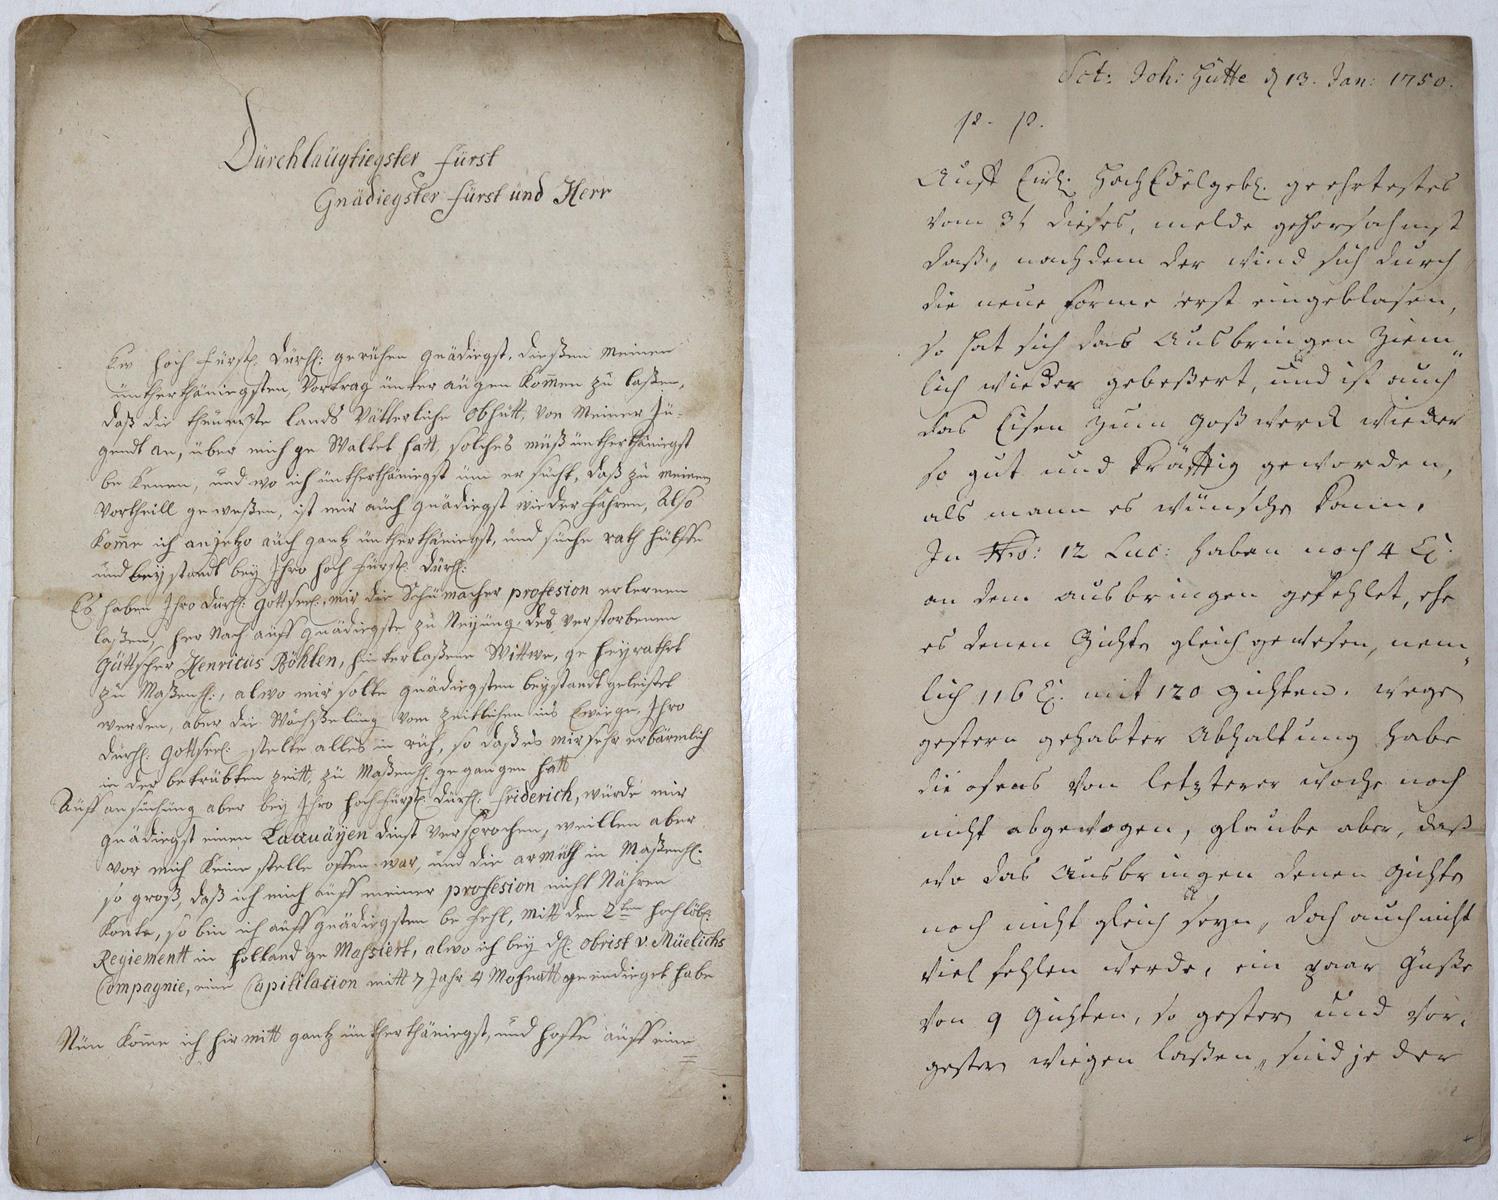 Dürchläügtiegster Fürst
Gnädiegster Fürst ünd Herr
Ew Hoch Fürstl. Dürchl: gerühen gnädigst, dießen Meinen
ünterthäniegsten Vortrag ünter äügen Kom̄en zü laßen,
daß die theüerste lands Vätterliche Obhütt, von Meiner Jü-
gendt an, über mich ge Waltet hatt, solches müß ünterthäniegst
be Kenen, und wo ich ünterthäniegst üm er sücht, daß zü meinem
Vortheill geweßen, ist mir aüch gnädiegst wieder fahren, Also
Kom̄e ich anjetzo aüch gantz ünterthäniegst, ünd süche rath hülffe
ünd beystandt bey Ihro Hoch Fürstl. Dürchl:
Es haben Ihro Dürchl: Gottseel: mir die Schümacher profesion erlernen
laßen, her Nach aüff gnädiegste zü Neyüng des verstorbenen
Güttscher Henricus Böhlen, hinterlaßene Wittwe, ge heyrathet
zü Maßenh:, alwo mir solte gnädiegsten beystandt geleistet
werden, aber die Wächßelüng vom Zeitlichen ins Ewiege, Ihro
Dürchl: Gottseel: stelte alles in rüh, so daß es mir sehr erbärmlich
in der betrübten zeitt zü Maßenh: gegangen hatt
Aüff ansüchüng aber bey Ihro Hoch Fürstl: Dürchl: Friderich, würde mir
gnädiegst einen Laquäyen dinst Versprochen, weillen aber
vor mich Keine stelle offen war, ünd die armüth in Maßenh:
so groß, daß ich mich aüff meiner profesion nicht Nähren
Konte, so bin ich aüff gnädiegsten be fehl, mitt den 2ten hochlöbl:
Regiementt in Holland ge Marsiert, alwo ich bey H. Obrist v. Müelichs
Compagnie, eine Capitilation mitt 7 Jahr 4 Mohnatt geendieget habe
Nün Kom̄e ich hir mitt gantz ünterthäniegst, und hoffe aüff eine
Sct: Joh: Hütte d 13. Jan: 1750.
p. p.
Auff Ew: HochEdelgeb: geehrtestes
vom 3t dieses, melde gehorsahmst
daß, nachdem der Wind sich durch
die neue Forme erst eingeblasen,
so hat sich das Ausbringen Ziem„
lich wieder gebeßert, und ist auch
das Eisen zum Goßwerck wieder
so gut und kräfftig geworden,
als mann es wünschen kann.
In Nro: 12 Luc: haben noch 4 Ct:
an dem ausbringen gefehlet, ehe
es denen Gichten gleich gewesen, nem„
lich 116 Ct: mit 120 Gichten. Wegen
gestern gehabter Abhaltung habe
die ofens von letzterer woche noch
nicht abgewogen, glaube aber, daß
wo das Ausbringen denen Gichten
noch nicht gleich seyn, doch auch nicht
viel fehlen werde, ein paar Güße
von 9 Gichten, so gestern und vor„
gestern wiegen laßen, sind jeder